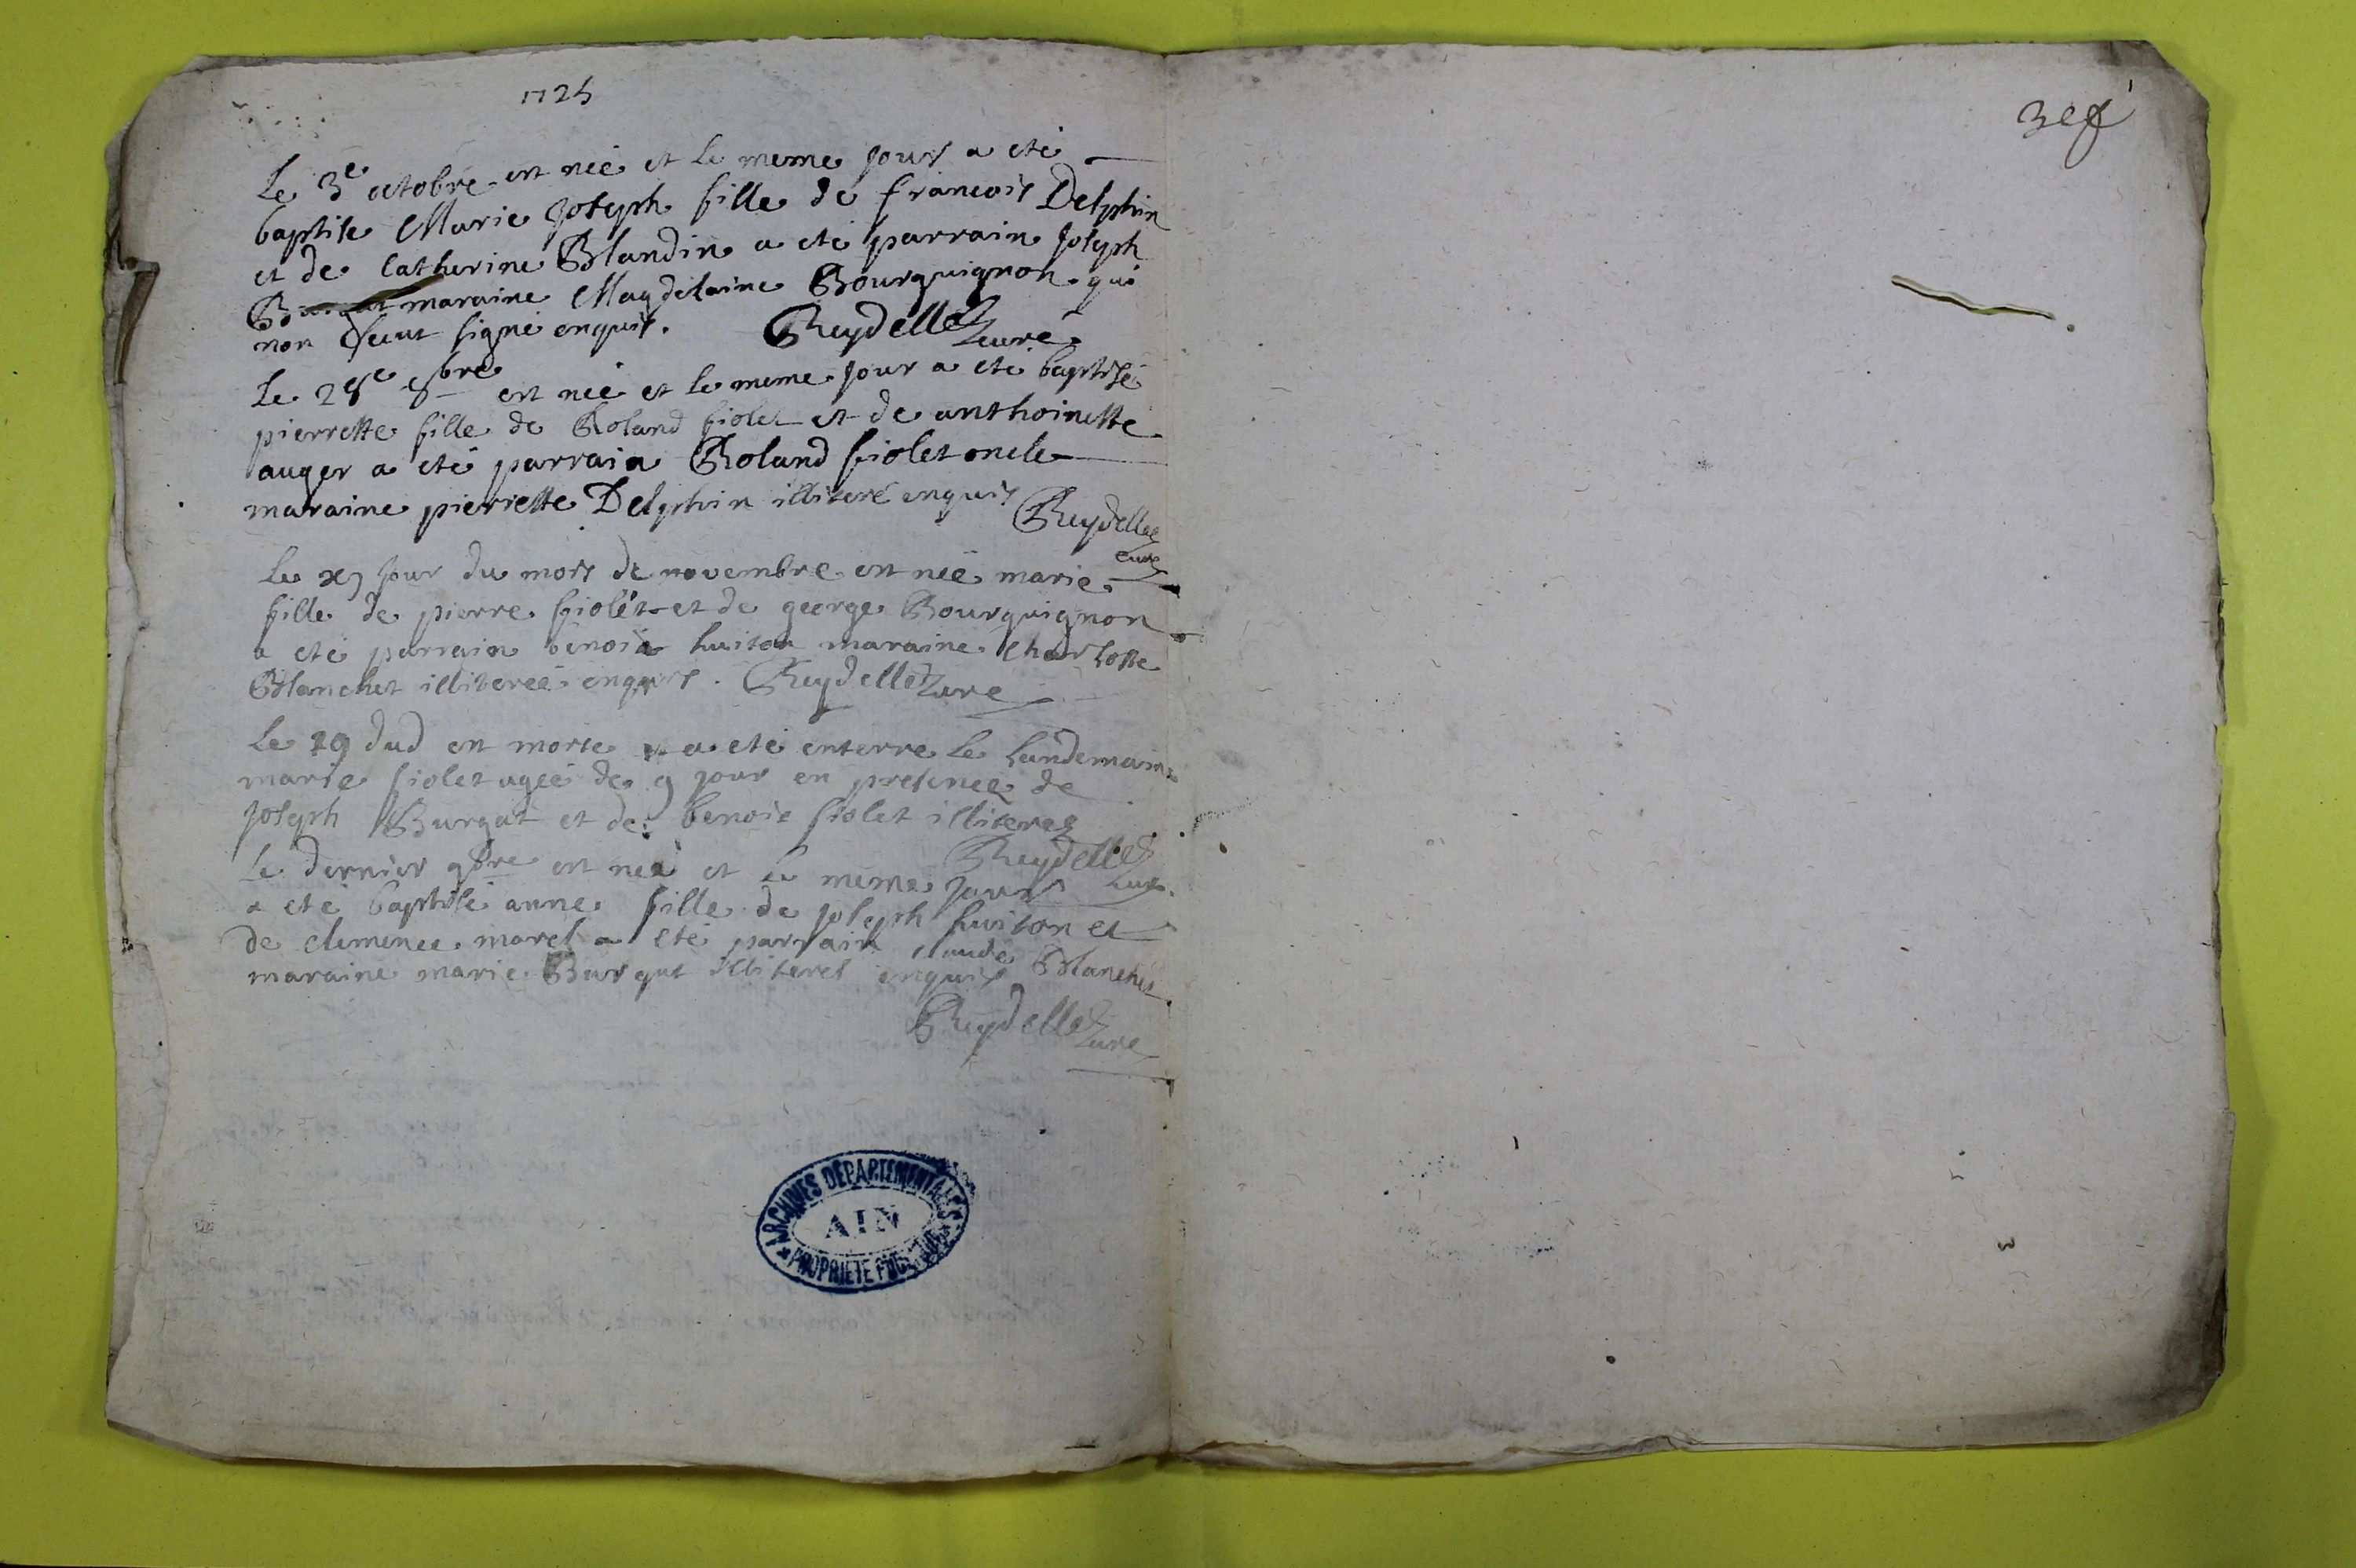 1725
3ef
Le 3e octobre est neé et le meme jour a eté
baptise Marie joseph fille de francois Delphin
et de Catherine Blandin a eté parrain joseph
maraine Magdelaine Bourguignon qui
non sceut signé enquis. Reydellet curé
Le 28e 8bre est neé et le meme jour a eté baptisé
pierrette fille de Roland fiolet et de anthoinette
auger a eté parrain Roland fiolet oncle
maraine pierrette Delphin illiteré enquis Reydellet
curé
Le xj jour du mois de novembre est neé marie
fille de pierre fiolet et de george Bourguignon
a eté parrain benoit huiton maraine Charlotte
Blanchet illitereé enquis. Reydellet curé
Le 19 dud est morte et a eté enterre le landemain
marie fiolet ageé de 9 jour en presence de
joseph Burgat et de benoit fiolet illiteres
Reydellet
curé
Le dernier 9bre est neé et le meme jour
a eté baptisé anne fille de joseph huiton et
de clemence morel a eté parrain claude Blanchet
maraine marie Burgat illiteres enquis
Reydellet curé
ARCHIVES DEPARTEMENTALES
AIN
PROPRIETE PUBLIQUE